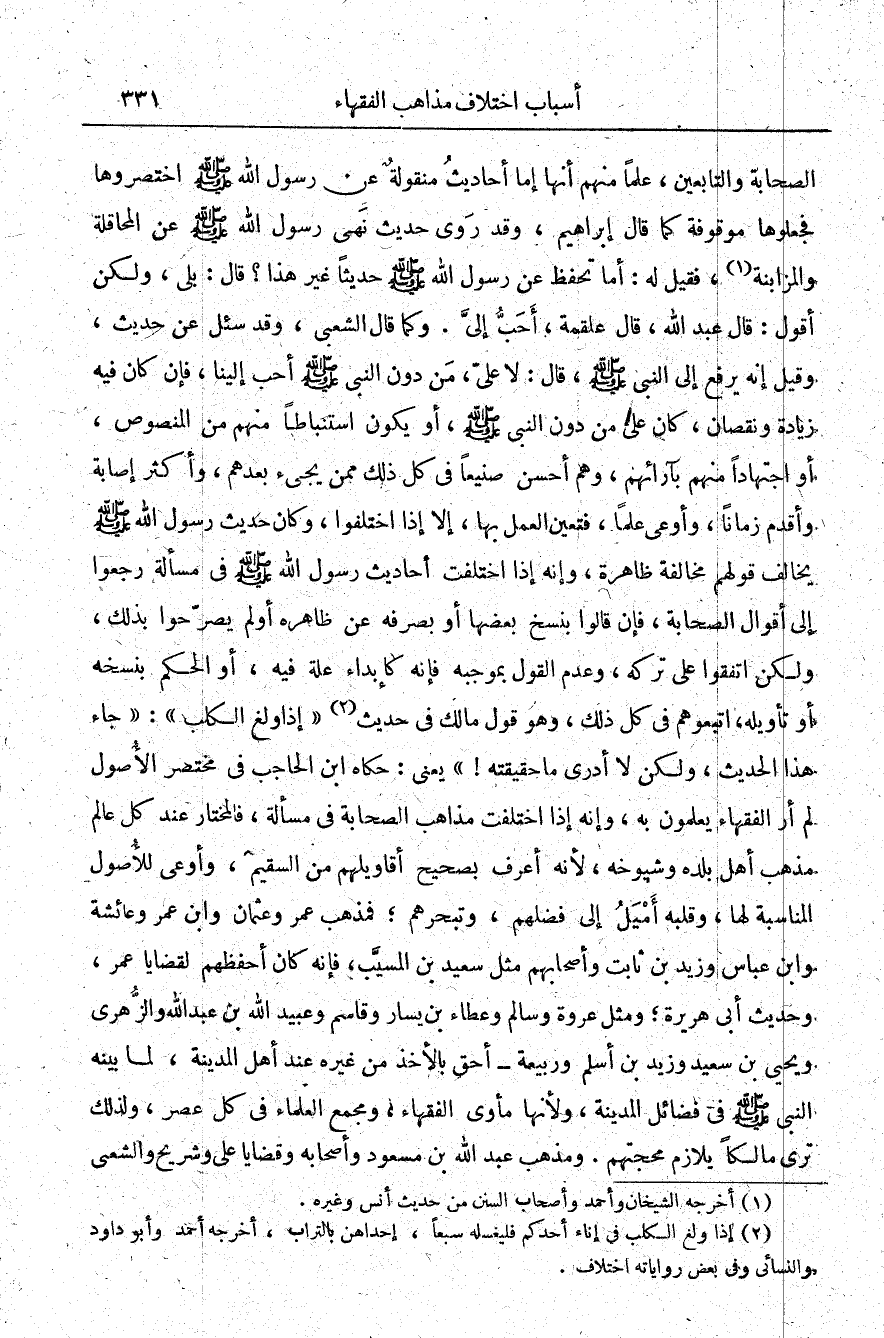 أسباب اختلاف مذاهب الفقهاء ٣٣١
الصحابة والتابعين ، علماً منهم أنها إما أحاديثُ منقولةٌ عن رسول الله ﷺ اختصروها
فجعلوها موقوفة كما قال إبراهيم ، وقد رَوى حديث نَهى رسول الله ﷺ عن المحاقلة
والمزابنة(١) ، فقيل له : أما تحفظ عن رسول الله ﷺ حديثاً غير هذا ؟ قال : بلى ، ولكن
أقول : قال عبد الله ، قال علقمة ، أَحَبُّ إلىَّ . وكما قال الشعبى ، وقد سئل عن حديث ،
وقيل إنه يرفع إلى النبى ﷺ ، قال : لا علىّ، مَن دون النبى ﷺ أحب إلينا ، فإن كان فيه
زيادة ونقصان ، كان على من دون النبى ﷺ ، أو يكون استنباطاً منهم من المنصوص ،
أو اجتهاداً منهم بآرائهم ، وهم أحسن صنيعاً فى كل ذلك ممن يجىء بعدهم ، وأكثر إصابة
وأقدم زماناً ، وأوعى علماً ، فتعين العمل بها ، إلا إذا اختلفوا ، وكان حديث رسول الله ﷺ
يخالف قولهم مخالفة ظاهرة ، وإنه إذا اختلفت أحاديث رسول الله ﷺ فى مسألة رجعوا
إلى أقوال الصحابة ، فإن قالوا بنسخ بعضها أو بصرفه عن ظاهره أولم يصرّحوا بذلك ،
ولكن اتفقوا على تركه ، وعدم القول بموجبه فإنه كإبداء علة فيه ، أو الحكم بنسخه
أو تأويله، اتبعوهم فى كل ذلك ، وهو قول مالك فى حديث(٢) « إذاولغ الكلب » : « جاء
هذا الحديث ، ولكن لا أدرى ماحقيقته ! » يعنى : حكاه ابن الحاجب فى مختصر الأُصول
لم أر الفقهاء يعلمون به ، وإنه إذا اختلفت مذاهب الصحابة فى مسألة ، فالمختار عند كل عالم
مذهب أهل بلده وشيوخه ، لأنه أعرف بصحيح أقاويلهم من السقيم ، وأوعى للأُصول
المناسبة لها ، وقلبه أَمْيَلُ إلى فضلهم ، وتبحرهم ؛ فمذهب عمر وعثمان وابن عمر وعائشة
وابن عباس وزيد بن ثابت وأصحابهم مثل سعيد بن المسيَّب، فإنه كان أحفظهم لقضايا عمر ،
وحديث أبى هريرة ؛ ومثل عروة وسالم وعطاء بن يسار وقاسم وعبيد الله بن عبدالله والزُّهرى
ويحيى بن سعيد وزيد بن أسلم وربيعة ــ أحق بالأخذ من غيره عند أهل المدينة ، لما بينه
النبى ﷺ فى فضائل المدينة ، ولأنها مأوى الفقهاء ، ومجمع العلماء فى كل عصر ، ولذلك
ترى مالكاً يلازم محجتهم . ومذهب عبد الله بن مسعود وأصحابه وقضايا على وشريح والشعبى
(١) أخرجه الشيخان وأحمد وأصحاب السنن من حديث أنس وغيره .
(٢) إذا ولغ الكلب فى إناء أحدكم فليغسله سبعاً ، إحداهن بالتراب ، أخرجه أحمد وأبو داود
والنسائى وفى بعض رواياته اختلاف .